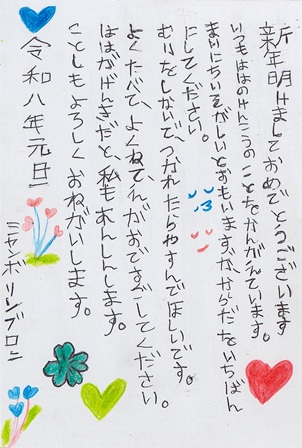 新年明けましておめでとうございます
いつもははのけんこうのことをかんがえています。
まいにちいそがしいとおもいますが、からだをいちばん
にしてください。
むりをしないで、つかれたらやすんでほしいです。
よくたべて、よくねて、えがおですごしてください。
ははがげんきだと、私もあんしんします。
ことしもよろしくおねがいします。
令和八年元旦
ミヤンボリンブロン